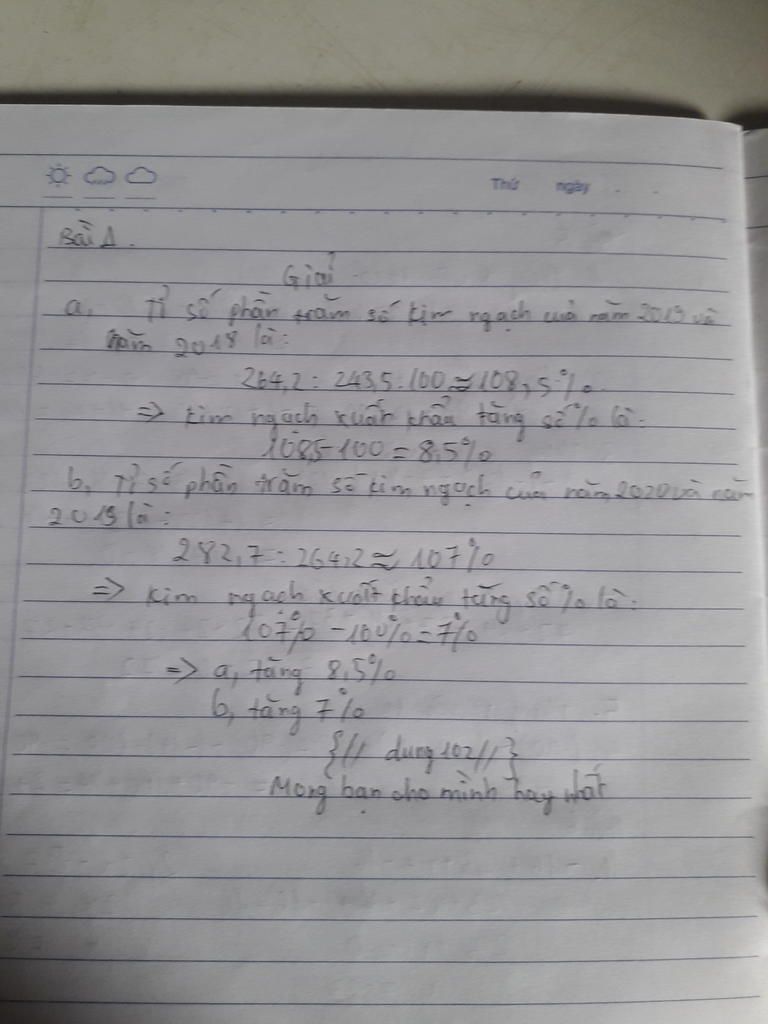 Thứ ngày
Bài 1.
Giải
a, Tỉ số phần trăm số kim ngạch của năm 2019 và
năm 2018 là:
264,2 : 243,5 . 100 ≈ 108,5%
=> Kim ngạch xuất khẩu tăng số % là:
108,5 - 100 = 8,5%
b, Tỉ số phần trăm số kim ngạch của năm 2020 và năm
2019 là:
282,7 : 264,2 ≈ 107%
=> Kim ngạch xuất khẩu tăng số % là:
107% - 100% = 7%
=> a, tăng 8,5%
b, tăng 7%
{// dung102//}
Mong bạn cho mình hay nhất